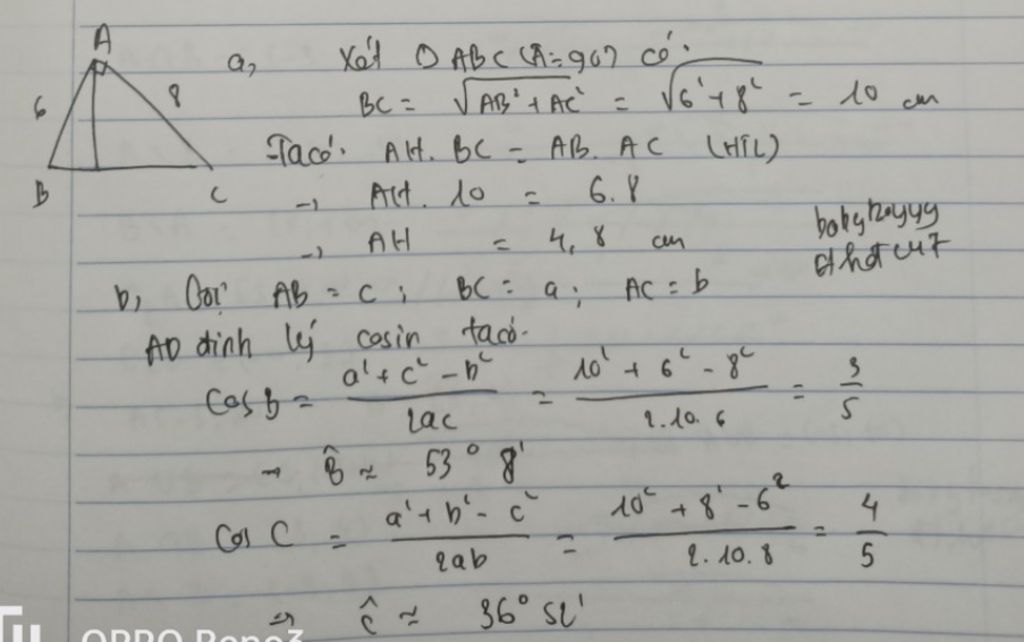 A
6
8
B
C
a, Xét △ ABC (Â=90°) có:
BC = √AB²+AC² = √6²+8² = 10 cm
Ta có: AH. BC = AB. AC (HTL)
→ AH. 10 = 6.8
→ AH = 4,8 cm
b, Gọi AB = c; BC = a; AC = b
AD định lý cosin ta có.
Cos B = a²+c²-b² / 2ac = 10²+6²-8² / 2.10.6 = 3/5
→ B̂ ≈ 53° 8'
Cos C = a²+b²-c² / 2ab = 10²+8²-6² / 2.10.8 = 4/5
⇒ Ĉ ≈ 36° 52'